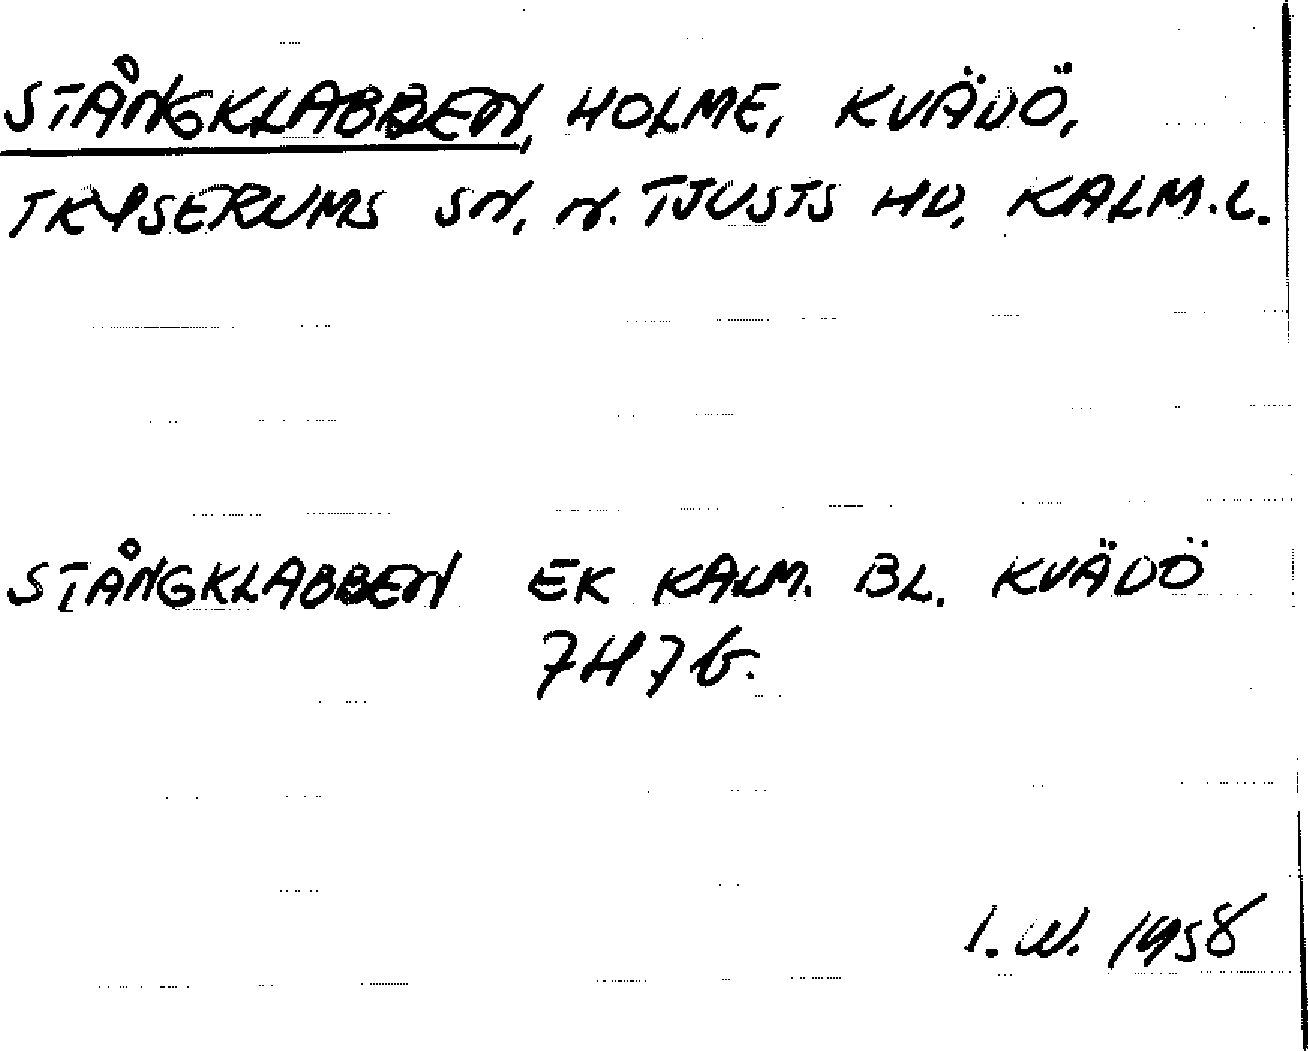 STÅNGKLABBEN, HOLME, KVÄDÖ,
TRYSERUMS SN, N. TJUSTS HD, KALM.L.
STÅNGKLABBEN EK KALM. BL. KVÄDÖ
7H7b.
I.W. 1958